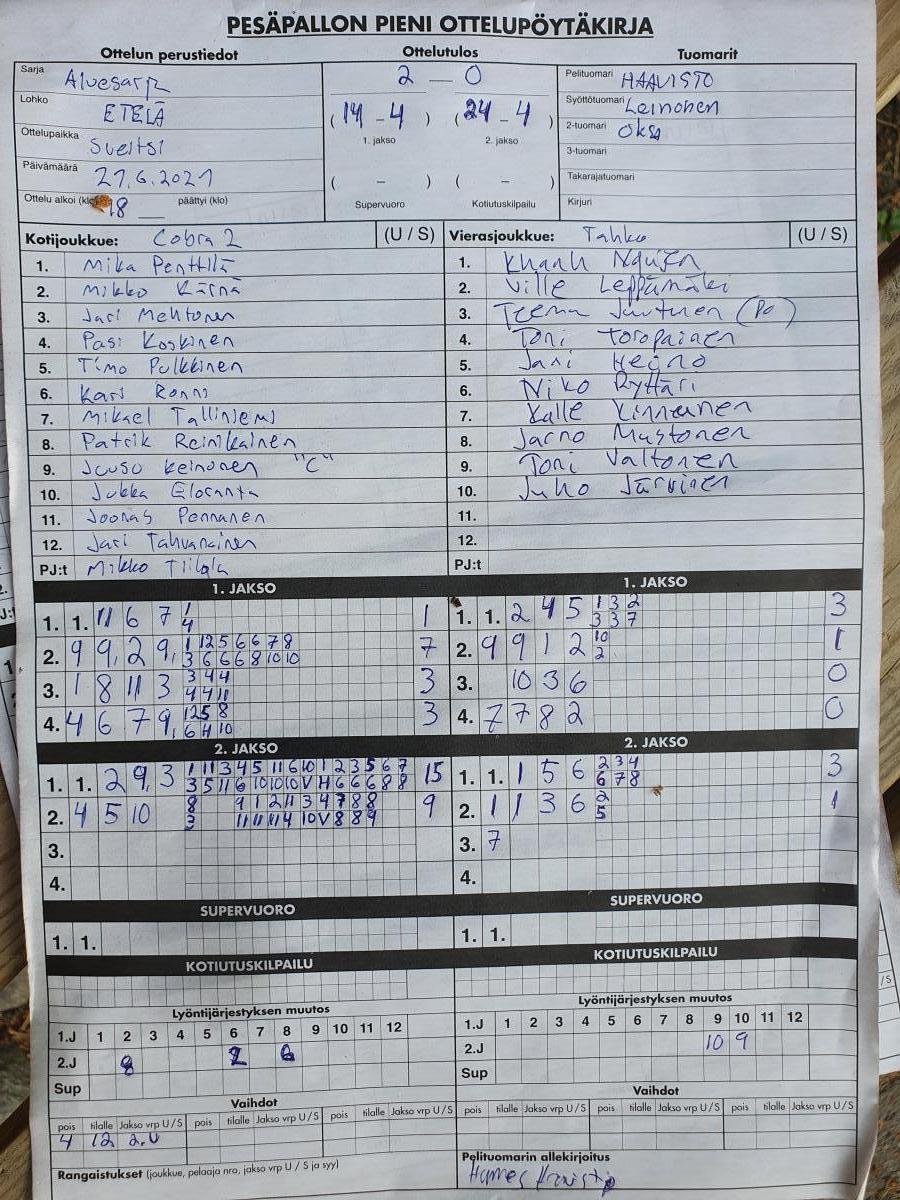 PESÄPALLON PIENI OTTELUPÖYTÄKIRJA
Ottelun perustiedot
Ottelutulos
Tuomarit
Sarja
Lohko ETELÄ
Ottelupaikka Sveitsi
Päivämäärä 27.6.2021
Ottelu alkoi (klo) 18 päättyi (klo)
2 - 0
(14 - 4) (24 - 4)
1. jakso 2. jakso
( - ) ( - )
Supervuoro Kotiutuskilpailu
Pelituomari HAAVISTO
Syöttötuomari Leinonen
2-tuomari Oksa
3-tuomari
Takarajatuomari
Kirjuri
Kotijoukkue: Cobra 2 (U / S)
1. Mika Penttilä
2. Mikko Kärnä
3. Jari Mehtonen
4. Pasi Koskinen
5. Timo Pulkkinen
6. Kari Ronni
7. Mikael Talliniemi
8. Patrik Reinikainen
9. Juuso Keinonen "C"
10. Jukka Eloranta
11. Joonas Pennanen
12. Jari Tahvanainen
PJ:t Mikko Tiilala
Vierasjoukkue: Tahko (U / S)
1. Khanh
2. Ville Leppämäki
3. Teemu Juutinen (PO)
4. Toni Toropainen
5. Jani Heino
6. Niko Ryttäri
7. Kalle Kinnunen
8. Jarno Mustonen
9. Toni Valtonen
10. Juho Järvinen
11.
12.
PJ:t
1. JAKSO
1. 1. 11 6 7 1
4
2. 9 9, 2 9, 1 12 5 6 6 7 8 7
3 6 6 6 8 10 10
3. 1 8 11 3 3 4 4 3
4 4 11
4. 4 6 7 9, 12 5 8 3
6 11 10
1. JAKSO
1. 1. 2 4 5 1 3 2 3
3 3 7
2. 9 9 1 2 10 1
2
3. 10 3 6 0
4. 7 7 8 2 0
2. JAKSO
1. 1. 2 9, 3 1 11 3 4 5 11 6 10 1 2 3 5 6 7 15
3 5 11 6 10 10 10 V H 6 6 6 8 8
2. 4 5 10 8 9 1 2 11 3 4 7 8 8 9
3 11 11 11 4 10 V 8 8 9
3.
4.
2. JAKSO
1. 1. 1 5 6 2 3 4 3
6 7 8
2. 1 1 3 6 2 1
5
3. 7
4.
SUPERVUORO
1. 1.
SUPERVUORO
1. 1.
KOTIUTUSKILPAILU
KOTIUTUSKILPAILU
Lyöntijärjestyksen muutos
1.J 1 2 3 4 5 6 7 8 9 10 11 12
2.J 8 2 6
Sup
Lyöntijärjestyksen muutos
1.J 1 2 3 4 5 6 7 8 9 10 11 12
2.J 10 9
Sup
Vaihdot
pois tilalle Jakso vrp U / S pois tilalle Jakso vrp U / S pois tilalle Jakso vrp U / S
4 12 2.U
Vaihdot
pois tilalle Jakso vrp U / S pois tilalle Jakso vrp U / S pois tilalle Jakso vrp U / S
Rangaistukset (joukkue, pelaaja nro, jakso vrp U / S ja syy)
Pelituomarin allekirjoitus